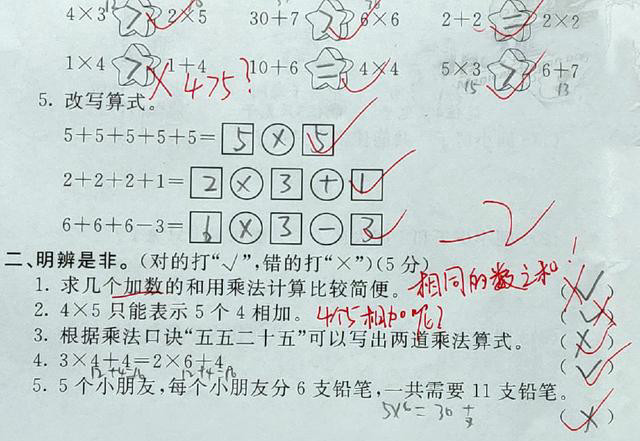 4×3 > 2×5 30+7 > 6×6 2+2 = 2×2
12 10
1×4 > 1+4 10+6 = 4×4 5×3 > 6+7
× 4>5? 15 13
5. 改写算式。
5+5+5+5+5= 5 × 5
2+2+2+1= 2 × 3 + 1
6+6+6-3= 6 × 3 - 3
-2
二、明辨是非。(对的打“√”,错的打“×”)(5分)
1. 求几个加数的和用乘法计算比较简便。 相同的数之和! (√)
2. 4×5只能表示5个4相加。 4个5相加呢? (√)
3. 根据乘法口诀“五五二十五”可以写出两道乘法算式。 (×)
4. 3×4+4=2×6+4 (√)
12+4=16 12+4=16
5. 5个小朋友,每个小朋友分6支铅笔,一共需要11支铅笔。 (×)
5×6=30